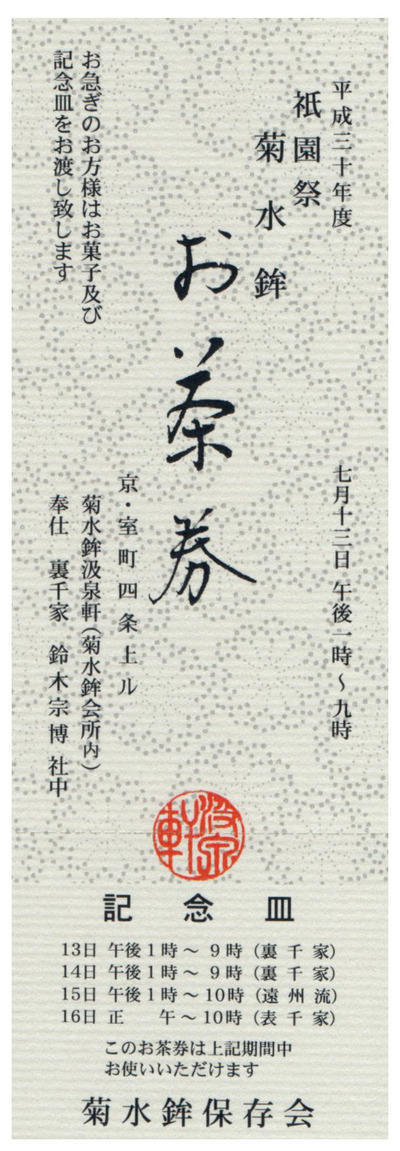 平成三十年度
七月十三日 午後一時～九時
祇園祭
菊水鉾
お茶券
京・室町四条上ル
菊水鉾汲泉軒（菊水鉾会所内）
奉仕 裏千家 鈴木宗博 社中
お急ぎのお方様はお菓子及び
記念皿をお渡し致します
汲泉軒
記念皿
13日 午後1時～ 9時（裏千家）
14日 午後1時～ 9時（裏千家）
15日 午後1時～10時（遠州流）
16日 正 午～10時（表千家）
このお茶券は上記期間中
お使いいただけます
菊水鉾保存会